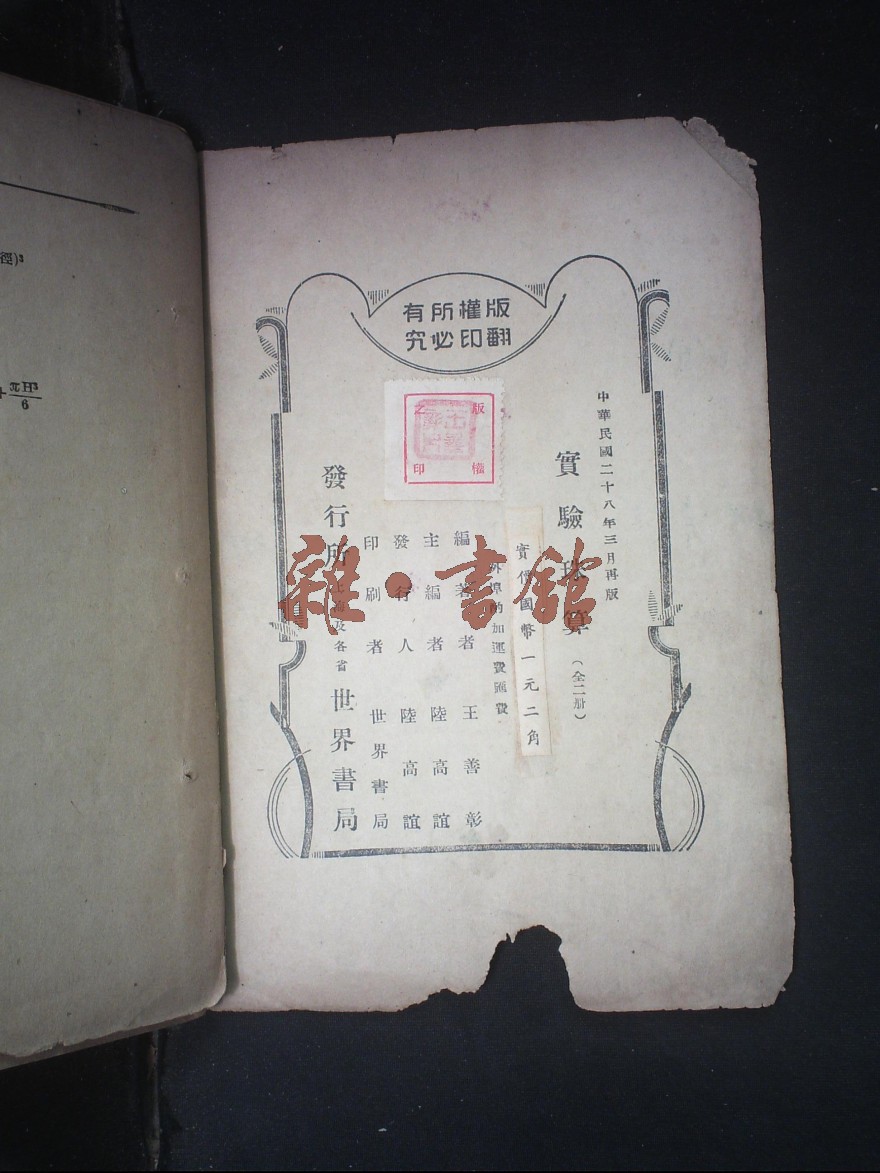 版權所有
翻印必究
中華民國二十八年三月再版
實驗珠算（全二册）
實價國幣一元二角
外埠酌加運費匯費
編著者 王善彰
主編者 陸高誼
發行人 陸高誼
印刷者 世界書局
發行所 上海及各省 世界書局
版權之印
雜·書館
徑)³
+πH³/6